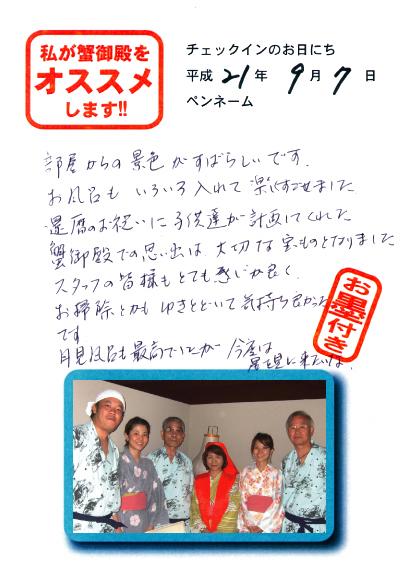 私が蟹御殿を
オススメ
します!!
チェックインのお日にち
平成 21 年 9 月 7 日
ペンネーム
部屋からの景色がすばらしいです.
お風呂も いろいろ入れて 楽しすごせました
還暦のお祝いに子供達が計画してくれた
蟹御殿での思い出は 大切な宝ものとなりました
スタッフの皆様もとても感じが良く、
お掃除とかも ゆきとどいて 気持ち良かった
です
月見風呂も最高でしたが 今度は
星を見に来たいな.
お墨付き